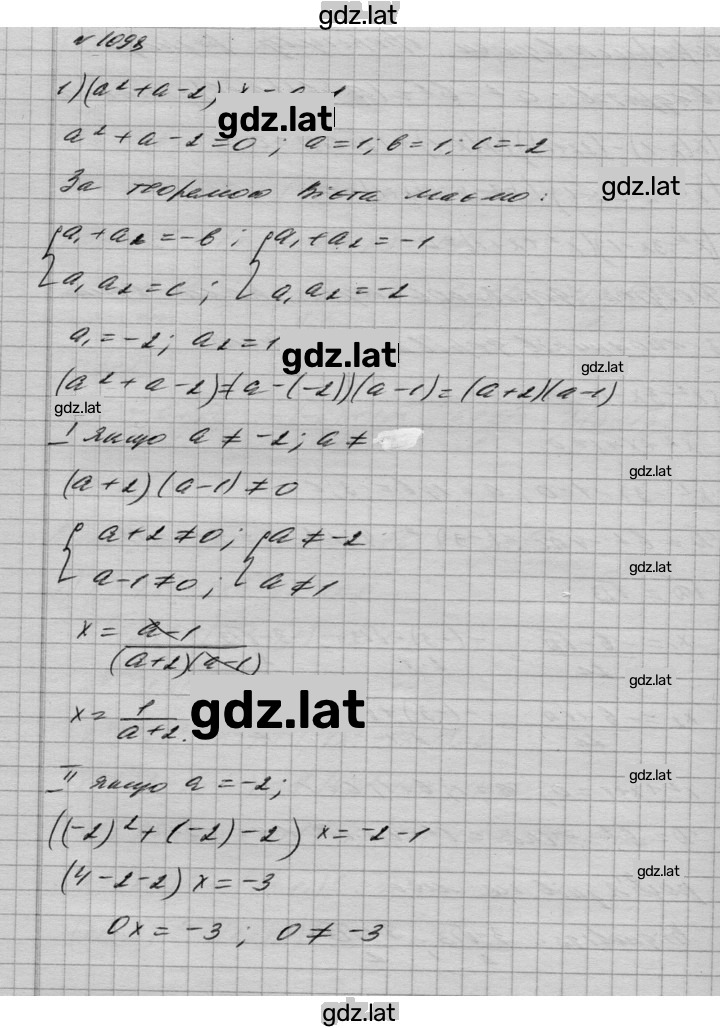 gdz.lat
№ 1098
1) (a² + a - 2) x = a - 1
gdz.lat
a² + a - 2 = 0 ; a = 1; в = 1; c = -2
За теоремою Вієта маємо:
gdz.lat
{ a₁ + a₂ = -в ; { a₁ + a₂ = -1
a₁ a₂ = c ; a₁ a₂ = -2
a₁ = -2; a₂ = 1
gdz.lat
gdz.lat
(a² + a - 2) = (a - (-2))(a - 1) = (a + 2)(a - 1)
gdz.lat
I якщо a ≠ -2; a ≠
gdz.lat
(a + 2) (a - 1) ≠ 0
{ a + 2 ≠ 0 ; { a ≠ -2
gdz.lat
a - 1 ≠ 0 ; a ≠ 1
x = a - 1
(a + 2)(a - 1)
gdz.lat
x = 1
a + 2.
gdz.lat
gdz.lat
II якщо a = -2;
((-2)² + (-2) - 2) x = -2 - 1
(4 - 2 - 2) x = -3
gdz.lat
0x = -3 ; 0 ≠ -3
gdz.lat